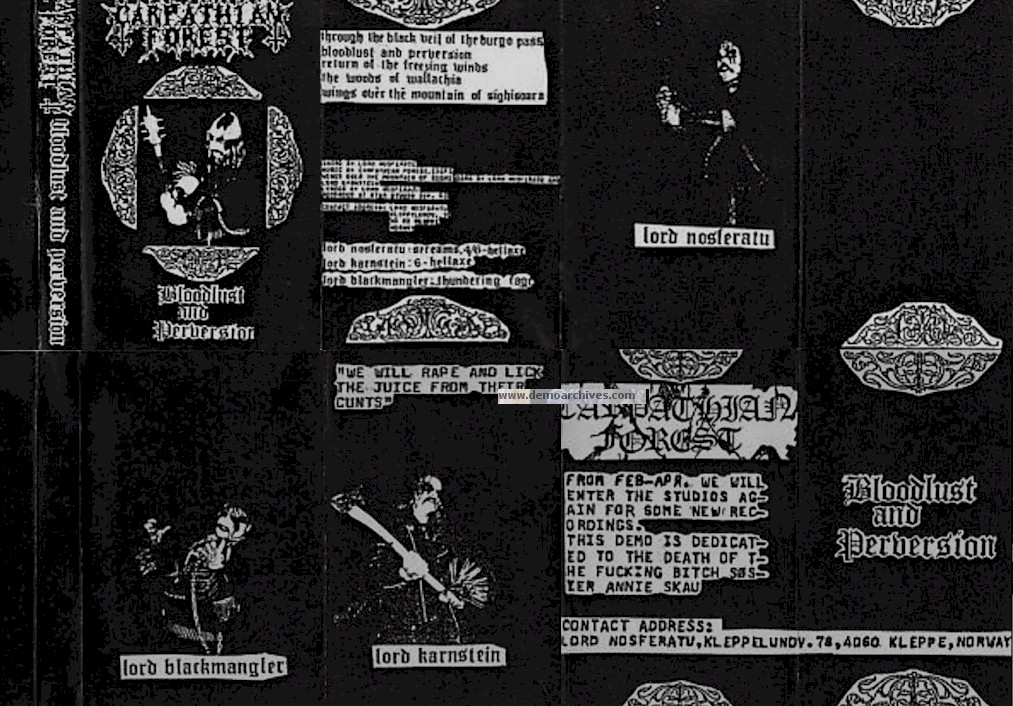 CARPATHIAN
FOREST
bloodlust and perversion
Bloodlust
and
Perversion
through the black veil of the burgo pass
bloodlust and perversion
return of the freezing winds
the woods of wallachia
wings over the mountain of sighisoara
lord nosferatu:screams,4/6-hellaxe
lord karnstein:6-hellaxe
lord blackmangler:thundering
lord nosferatu
"WE WILL RAPE AND LICK
THE JUICE FROM THEIR
CUNTS"
www.demoarchives.com
lord blackmangler
lord karnstein
CARPATHIAN
FOREST
FROM FEB-APR. WE WILL
ENTER THE STUDIOS AG-
AIN FOR SOME NEW REC-
ORDINGS.
THIS DEMO IS DEDICAT-
ED TO THE DEATH OF T-
HE FUCKING BITCH SØS-
TER ANNIE SKAU
CONTACT ADDRESS:
LORD NOSFERATU,KLEPPELUNDV.78,4060 KLEPPE,NORWAY
Bloodlust
and
Perversion